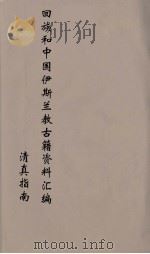 回族和中国伊斯兰教古籍资料汇编
清真指南
www.duxiu.com